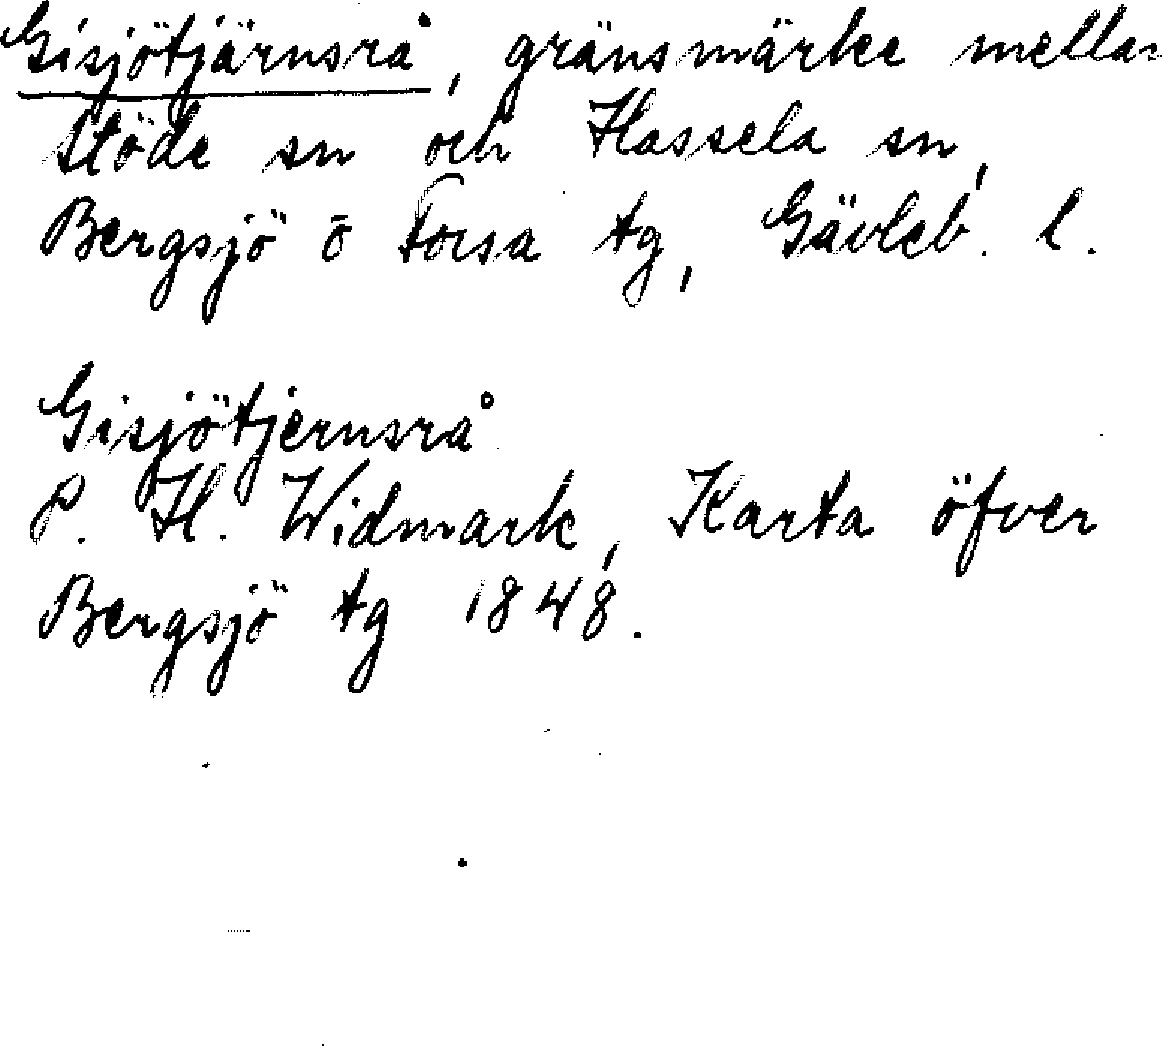 Gisjötjärnsrå, gränsmärke mellan
Stöde sn och Hassela sn,
Bergsjö o Forsa tg, Gävleb. l.
Gisjötjernsrå
P. H. Widmark, Karta öfver
Bergsjö tg 1848.